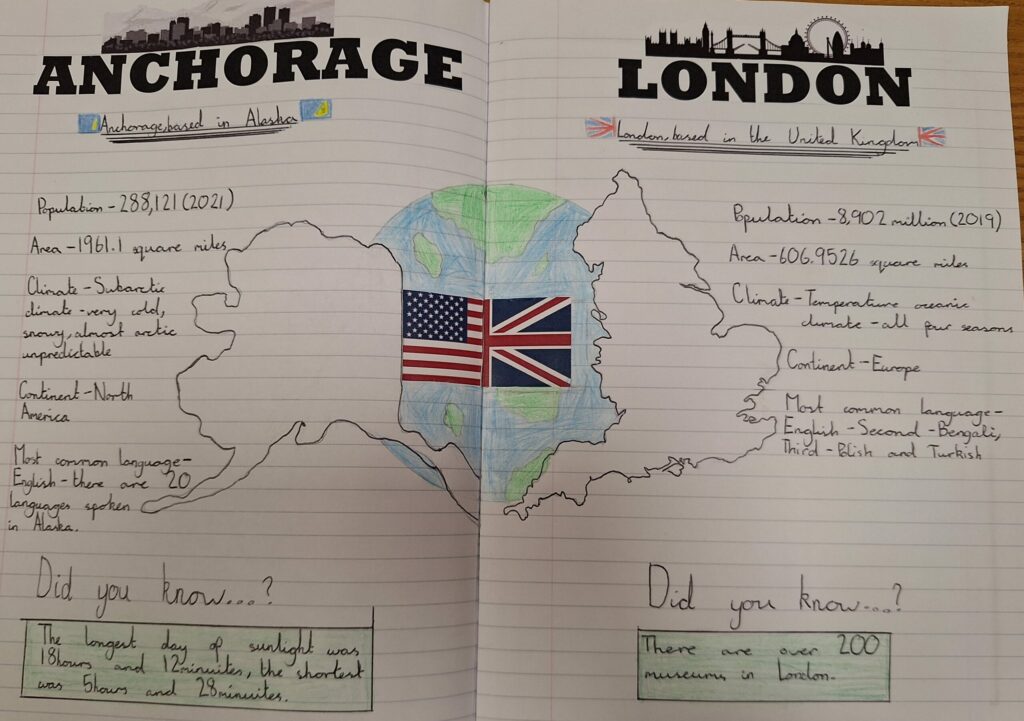 ANCHORAGE
Anchorage, based in Alaska
Population - 288,121 (2021)
Area - 1961.1 square miles
Climate - Subarctic
climate - very cold,
snowy, almost arctic
unpredictable
Continent - North
America
Most common language -
English - there are 20
languages spoken
in Alaska.
Did you know...?
The longest day of sunlight was
18hours and 12minuites, the shortest
was 5hours and 28minuites.
LONDON
London, based in the United Kingdom
Population - 8,902 million (2019)
Area - 606.9526 square miles
Climate - Temperature oceanic
climate - all four seasons
Continent - Europe
Most common language -
English - Second - Bengali,
Third - Polish and Turkish
Did you know...?
There are over 200
museums in London.